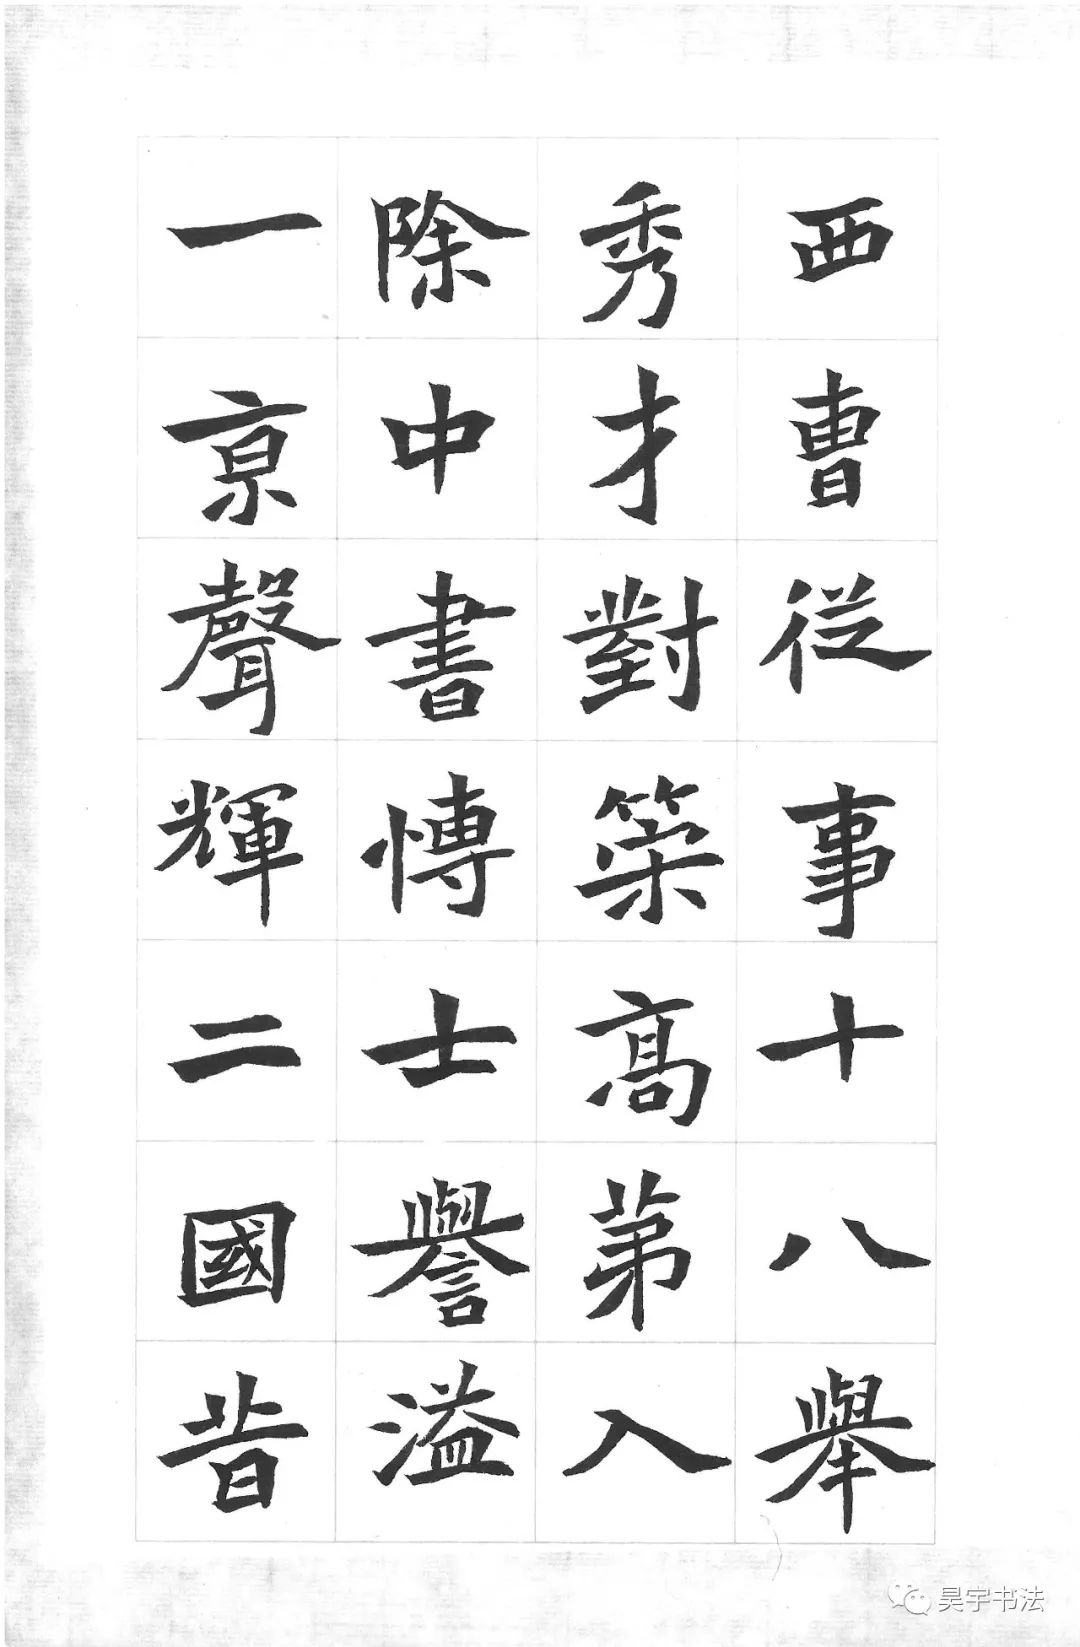 西曹從事十八舉
秀才對策高第入
除中書博士譽溢
一京聲輝二國昔
昊宇书法